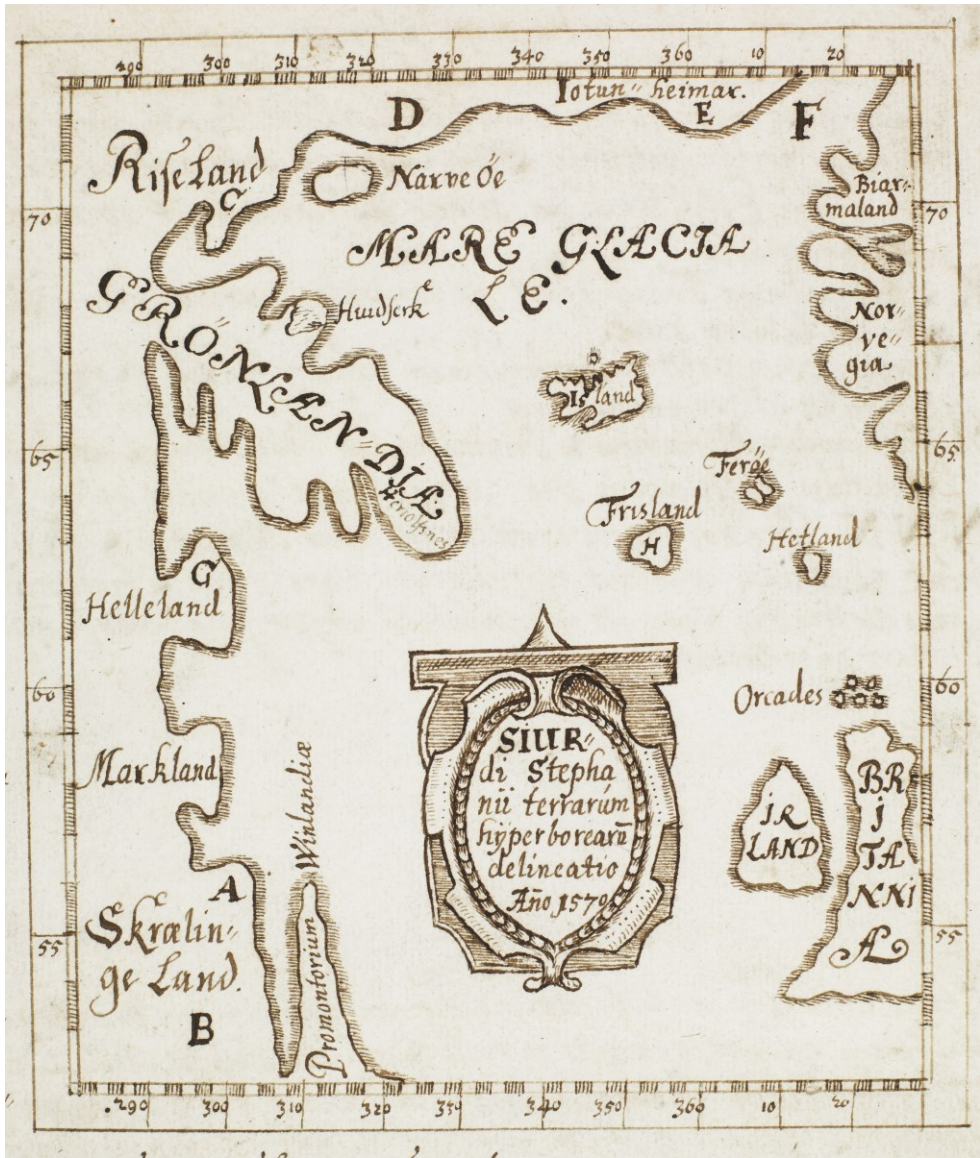 290 300 310 320 330 340 350 360 10 20
Iotun heimar.
D
E
F
Riseland
C
Narve Öe
Biar-
maland
70
70
MARE GLACIA
LE.
GRÖNLANDIA
Huidserk
Nor-
ve-
gia
Island
65
65
Feröe
Frisland
H
Hetland
G
Helleland
60
60
Orcades
Markland
Promontorium Winlandiæ
SIUR-
di Stepha
nii terrarum
hÿperborearū
delineatio
Año 1570
IR
LAND
BR
I
TA
NNI
Æ
A
Skrælin-
ge Land.
55
55
B
290 300 310 320 330 340 350 360 10 20